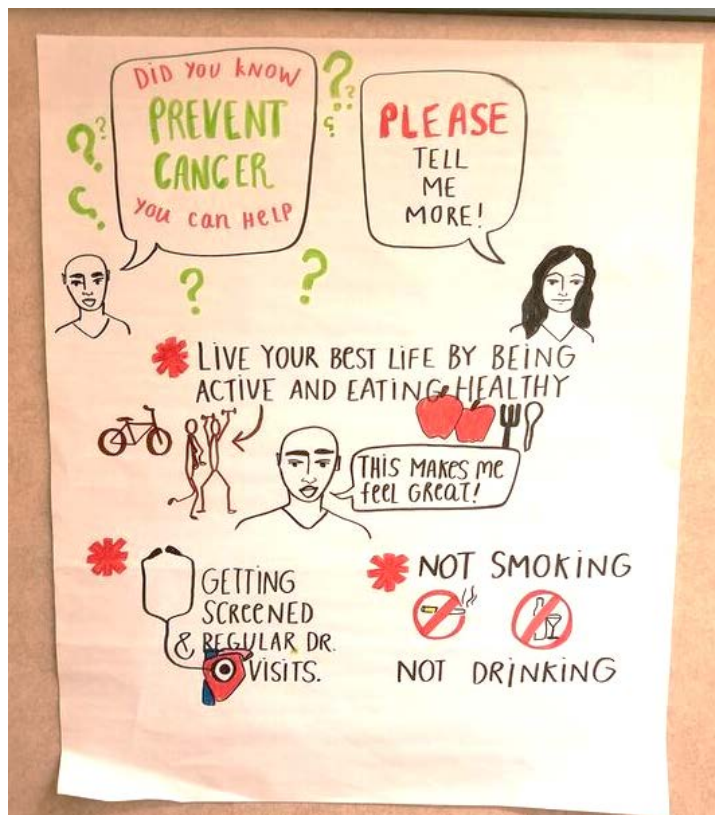 DiD YOU KNOW
PREVENT
CANCER
YOU can HELP
PLEASE
TELL
ME
MORE!
LiVE YOUR BEST LiFE BY BEiNG
ACTiVE AND EATiNG HEALTHY
THiS MAKES ME
feel GREAT!
GETTiNG
SCREENED
& REGULAR DR.
ViSiTS.
NOT SMOKiNG
NOT DRiNKiNG